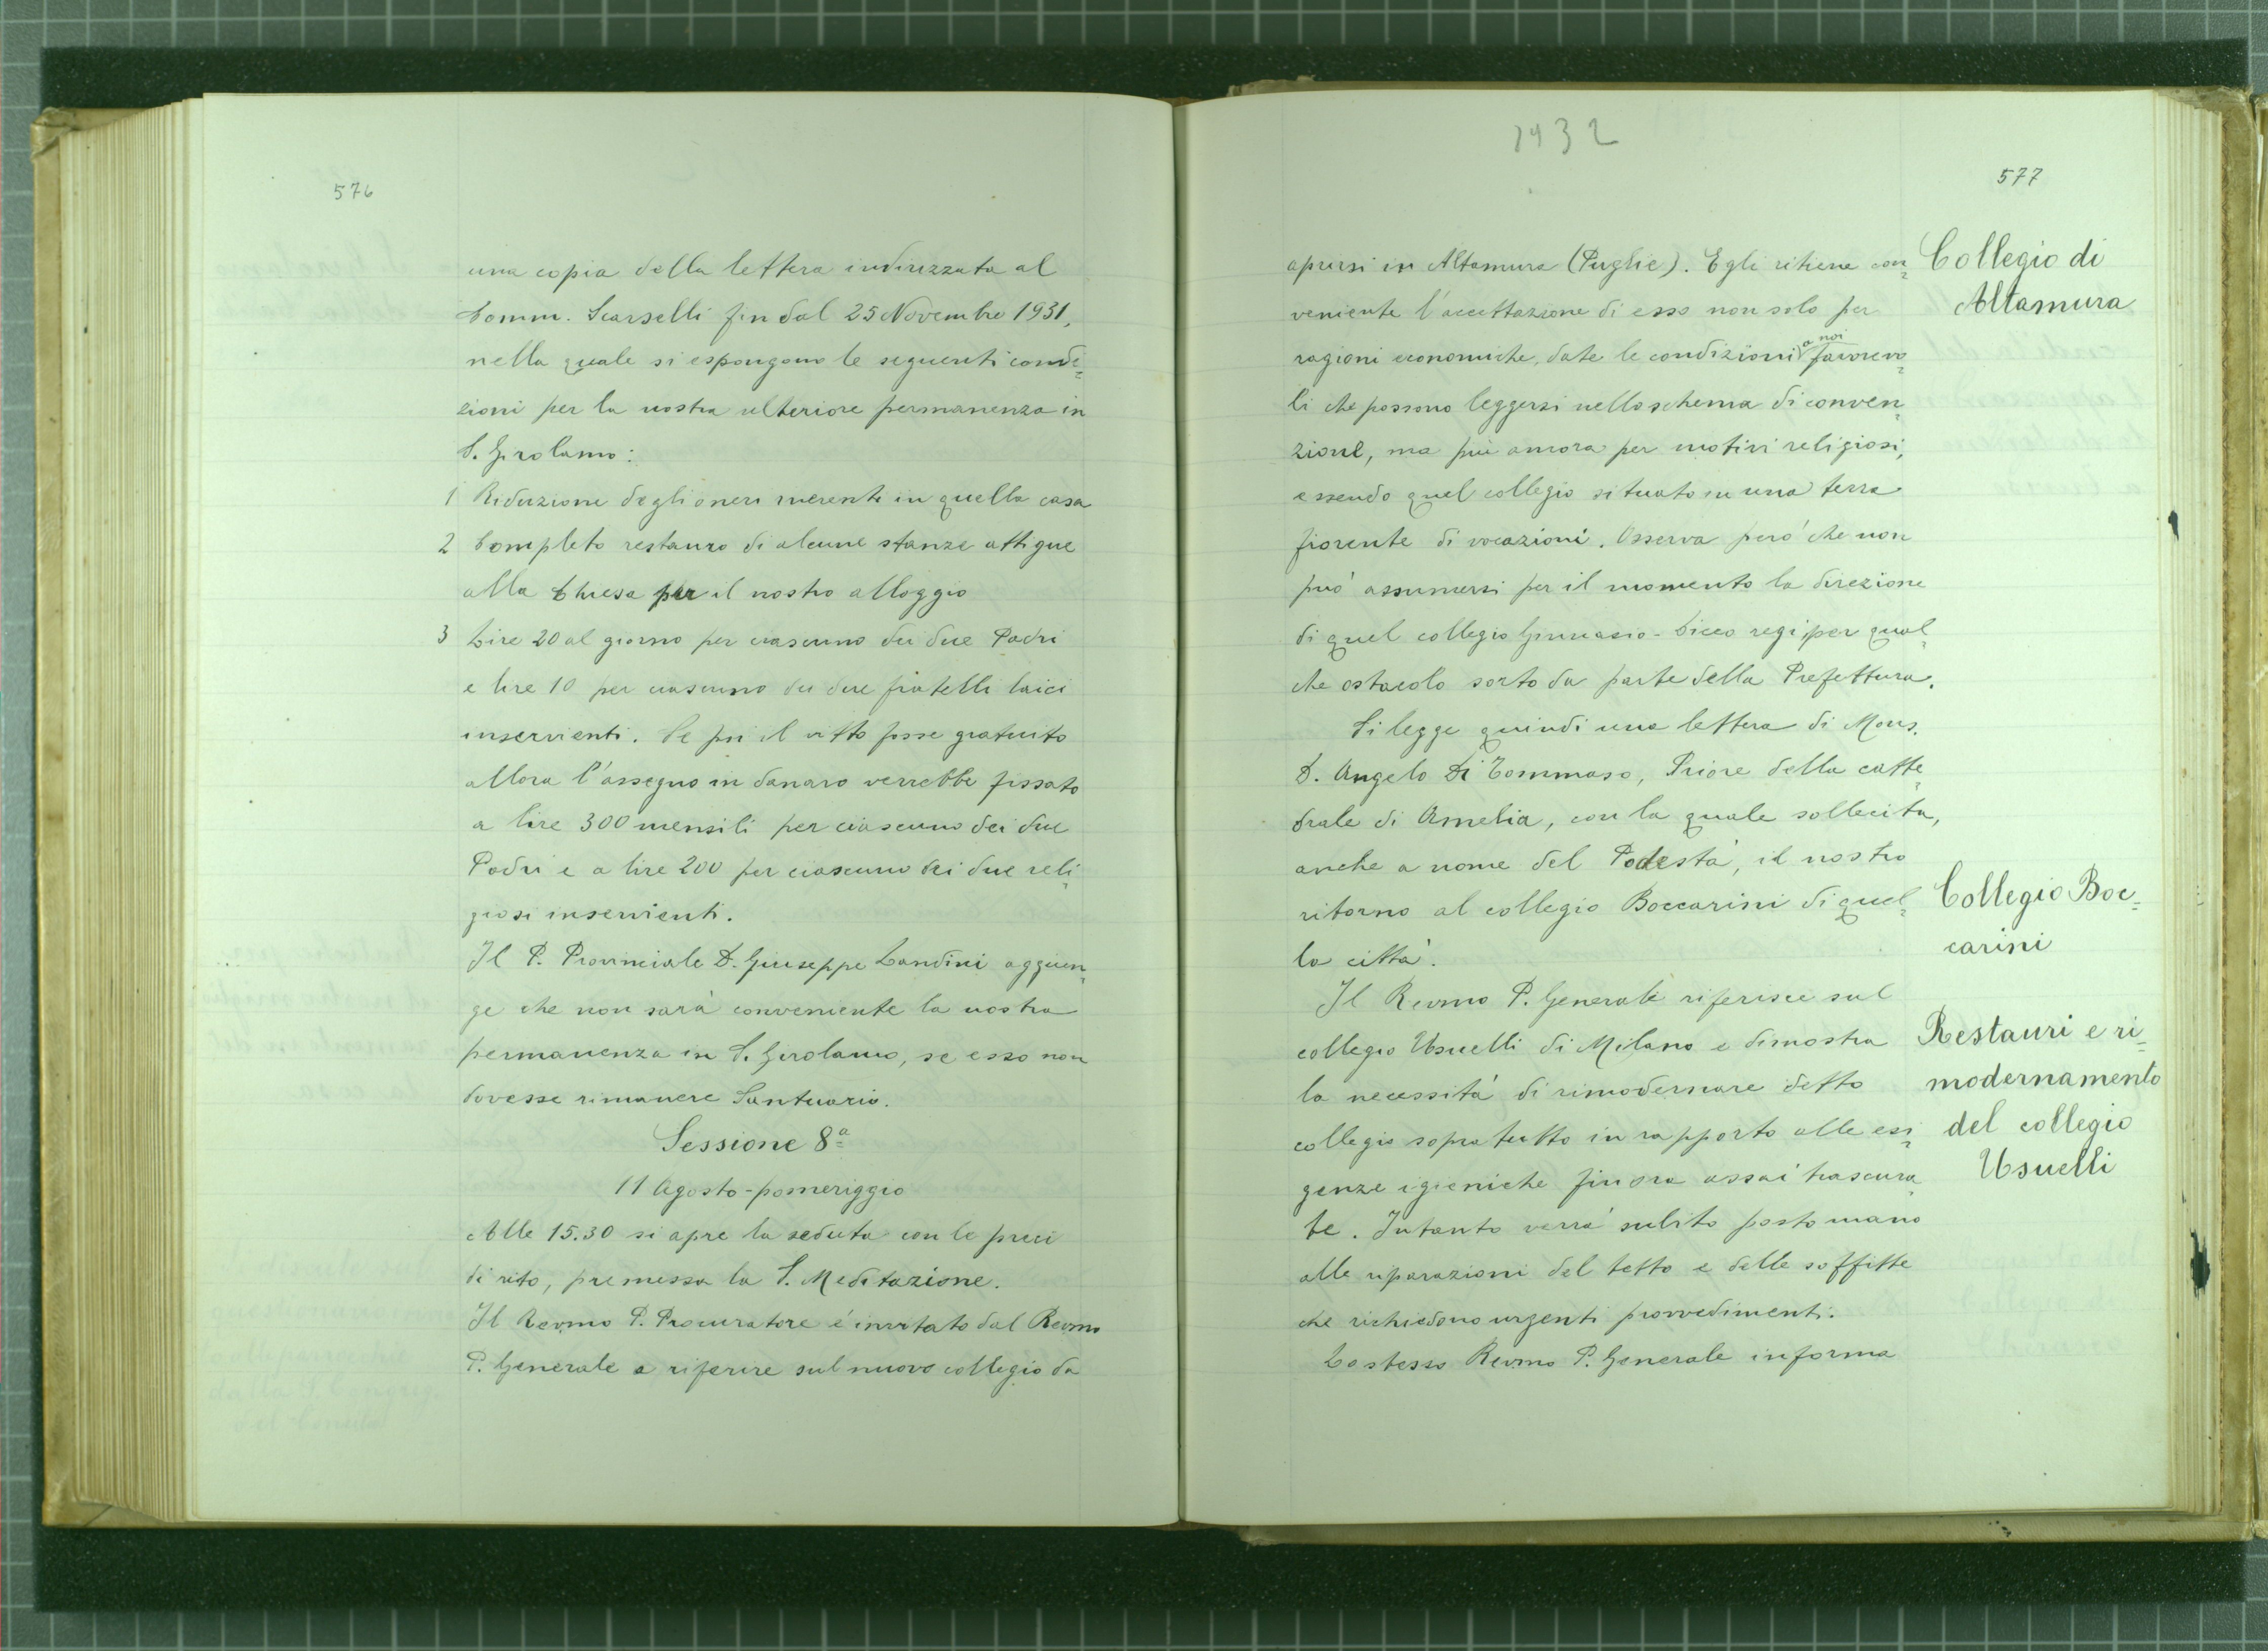 576
una copia della lettera indirizzata al
Comm. Scarselli fin dal 25 Novembre 1931,
nella quale si espongono le seguenti condi=
zioni per la nostra ulteriore permanenza in
S. Girolamo:
1 Riduzione degli oneri inerenti in quella casa
2 Completo restauro di alcune stanze attigue
alla Chiesa per il nostro alloggio
3 Lire 20 al giorno per ciascuno dei due Padri
e lire 10 per ciascuno dei due fratelli laici
inservienti. Se poi il vitto fosse gratuito
allora l'assegno in danaro verrebbe fissato
a lire 300 mensili per ciascuno dei due
Padri e a lire 200 per ciascuno dei due reli=
giosi inservienti.
Il P. Provinciale D. Giuseppe Landini aggiun=
ge che non sarà conveniente la nostra
permanenza in S. Girolamo, se esso non
dovesse rimanere Santuario.
Sessione 8ª
11 Agosto-pomeriggio
Alle 15.30 si apre la seduta con le preci
di rito, premessa la S. Meditazione.
Il Revmo P. Procuratore é invitato dal Revmo
P. Generale a riferire sul nuovo collegio da
1932
577
aprirsi in Altamura (Puglie). Egli ritiene con=
veniente l'accettazione di esso non solo per
ragioni economiche, date le condizioni a noi favorevo=
li che possono leggersi nello schema di conven=
zione, ma più ancora per motivi religiosi,
essendo quel collegio situato in una terra
fiorente di vocazioni. Osserva però che non
può assumersi per il momento la direzione
di quel collegio Ginnasio-Liceo regi per qual=
che ostacolo sorto da parte della Prefettura.
Si legge quindi una lettera di Mons.
D. Angelo Di Tommaso, Priore della catte=
drale di Amelia, con la quale sollecita,
anche a nome del Podestà, il nostro
ritorno al collegio Boccarini di quel=
la città.
Il Revmo P. Generale riferisce sul
collegio Usuelli di Milano e dimostra
la necessità di rimodernare detto
collegio sopratutto in rapporto alle esi=
genze igieniche finora assai trascura=
te. Intanto verrà subito posto mano
alle riparazioni del tetto e delle soffitte
che richiedono urgenti provvedimenti.
Lo stesso Revmo P. Generale informa
Collegio di
Altamura
Collegio Boc=
carini
Restauri e ri=
modernamento
del collegio
Usuelli